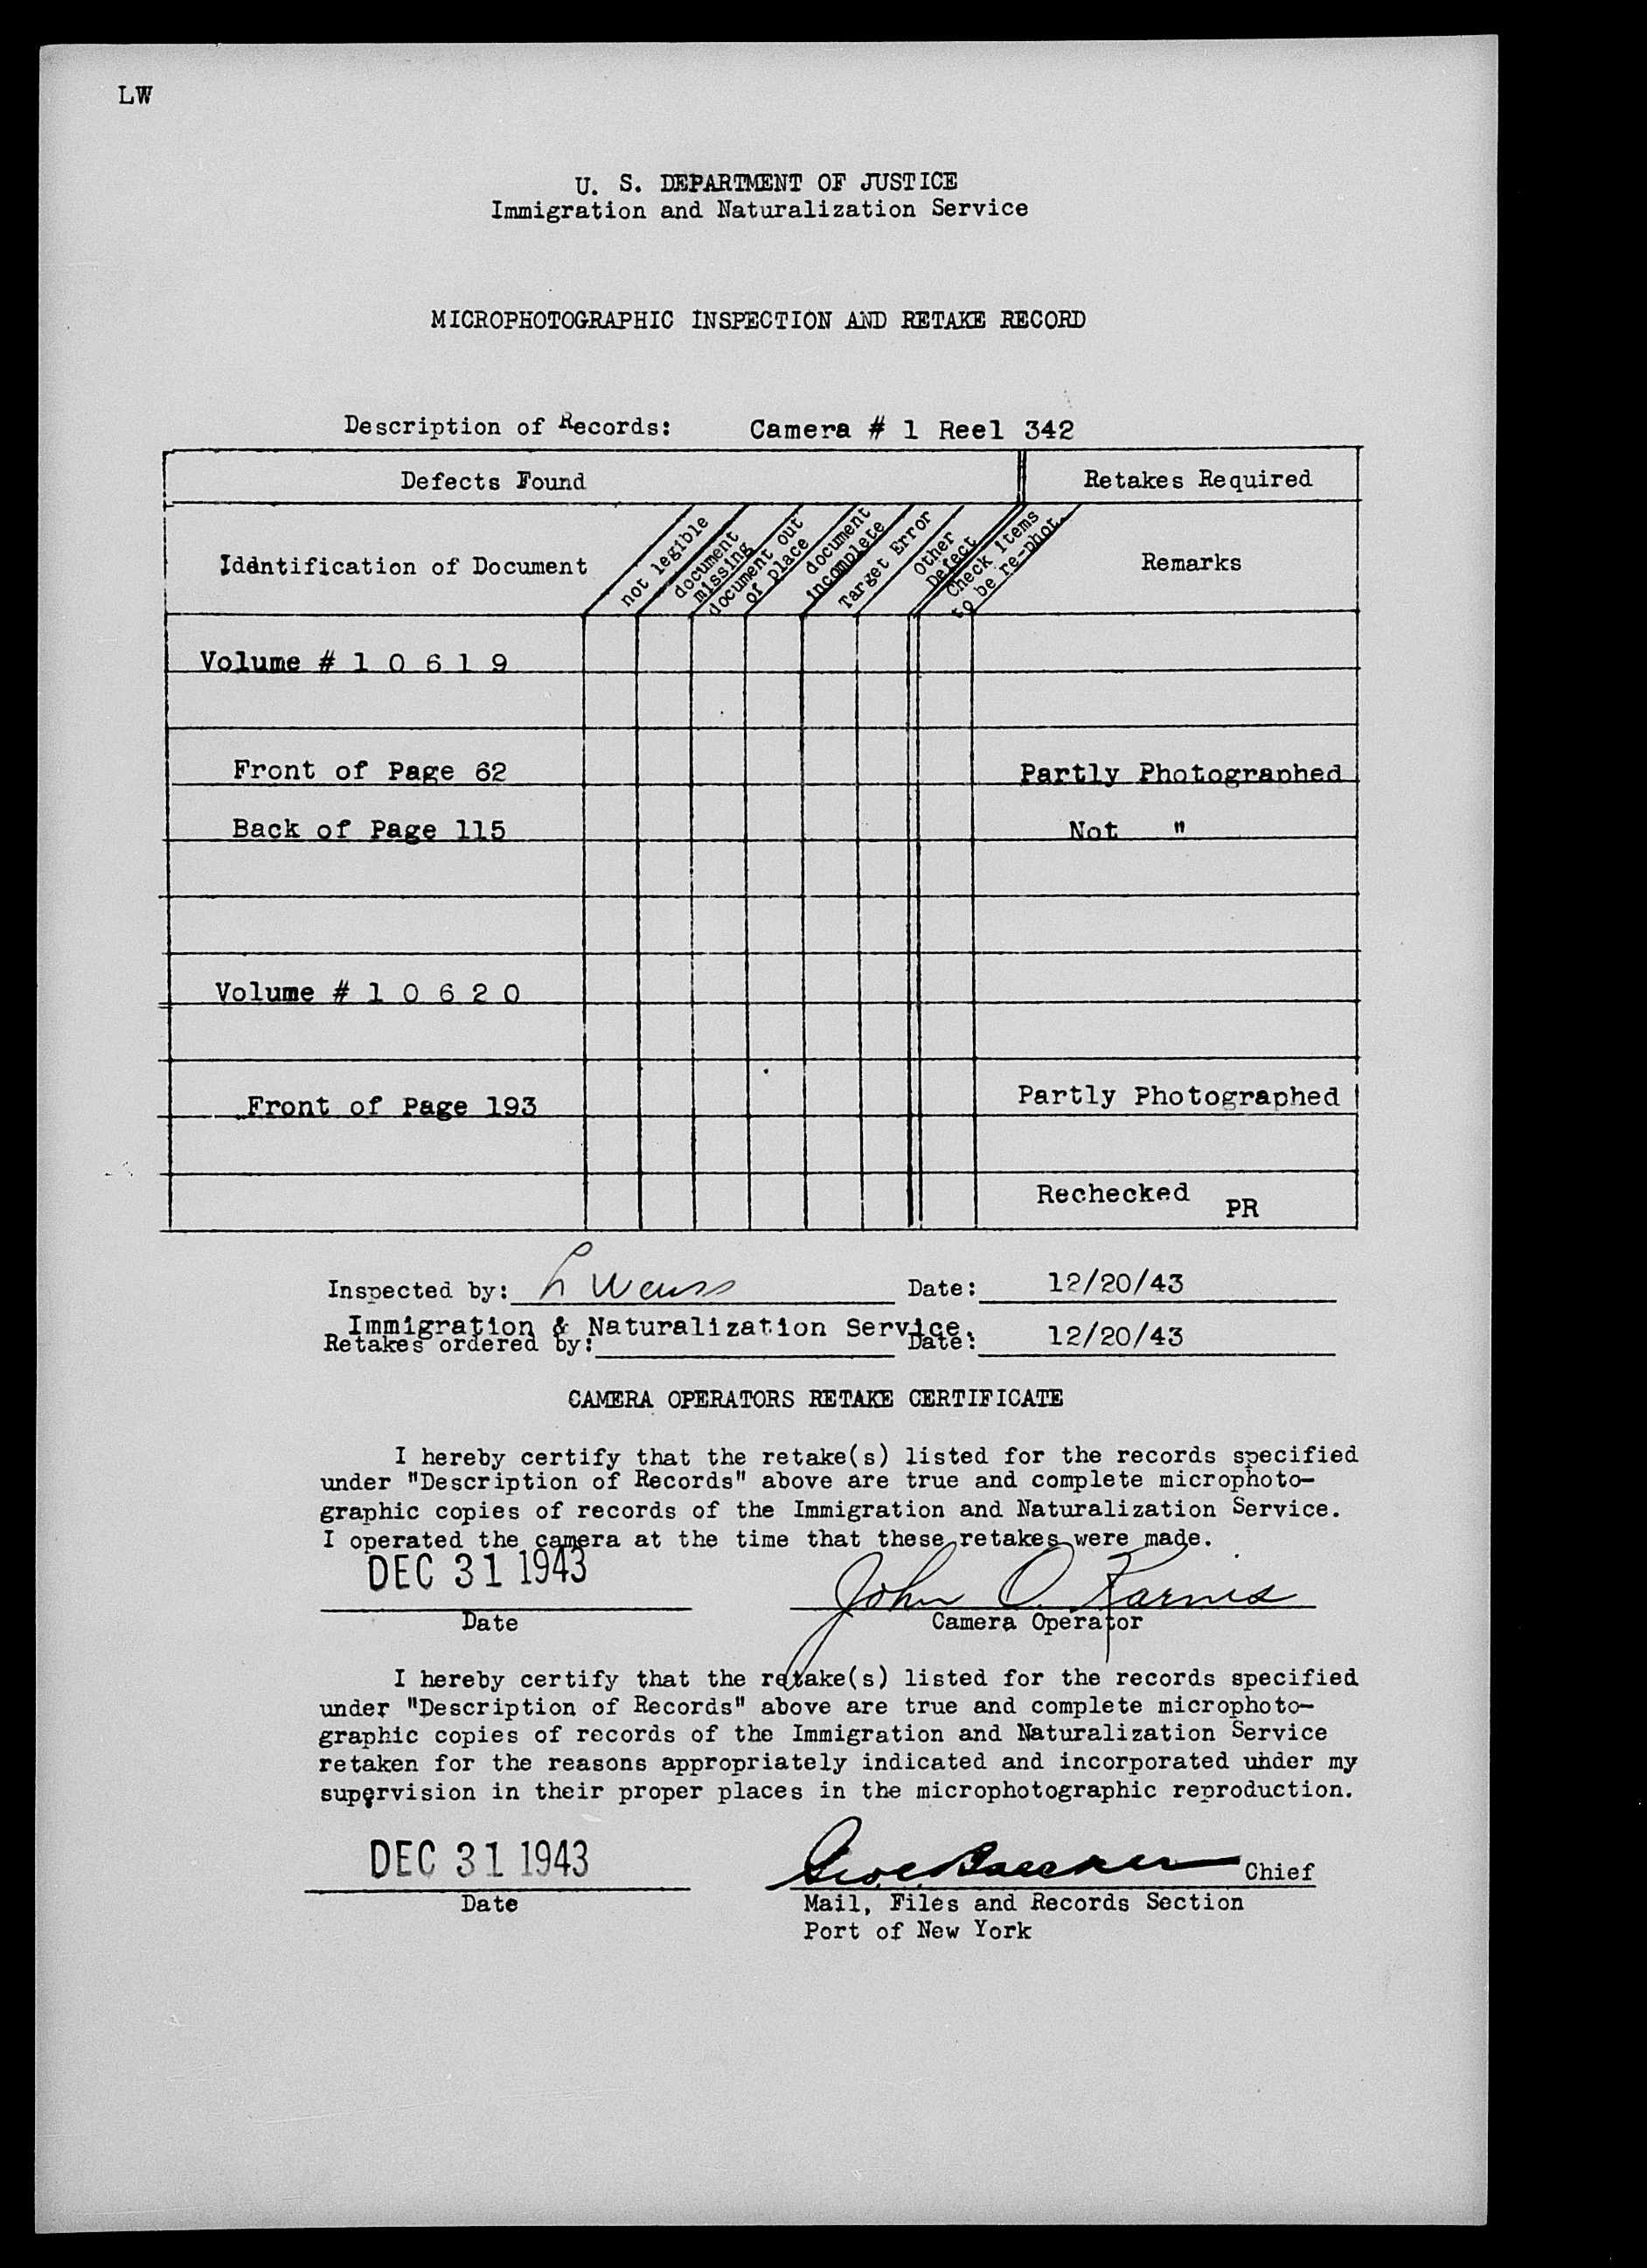 LW
U. S. DEPARTMENT OF JUSTICE
Immigration and Naturalization Service
MICROPHOTOGRAPHIC INSPECTION AND RETAKE RECORD
Description of Records: Camera # 1 Reel 342
Defects Found Retakes Required
Identification of Document
not legible
document missing
document out of place
document incomplete
Target Error
Other Defect
Check items to be re-phot.
Remarks
Volume # 1 0 6 1 9
Front of Page 62 Partly Photographed
Back of Page 115 Not "
Volume # 1 0 6 2 0
Front of Page 193 Partly Photographed
Rechecked PR
Inspected by: L Weiss Date: 12/20/43
Immigration & Naturalization Service.
Retakes ordered by: Date: 12/20/43
CAMERA OPERATORS RETAKE CERTIFICATE
I hereby certify that the retake(s) listed for the records specified
under "Description of Records" above are true and complete microphoto-
graphic copies of records of the Immigration and Naturalization Service.
I operated the camera at the time that these retakes were made.
DEC 31 1943 John O. Karnis
Date Camera Operator
I hereby certify that the retake(s) listed for the records specified
under "Description of Records" above are true and complete microphoto-
graphic copies of records of the Immigration and Naturalization Service
retaken for the reasons appropriately indicated and incorporated under my
supervision in their proper places in the microphotographic reproduction.
DEC 31 1943 Chief
Date Mail, Files and Records Section
Port of New York